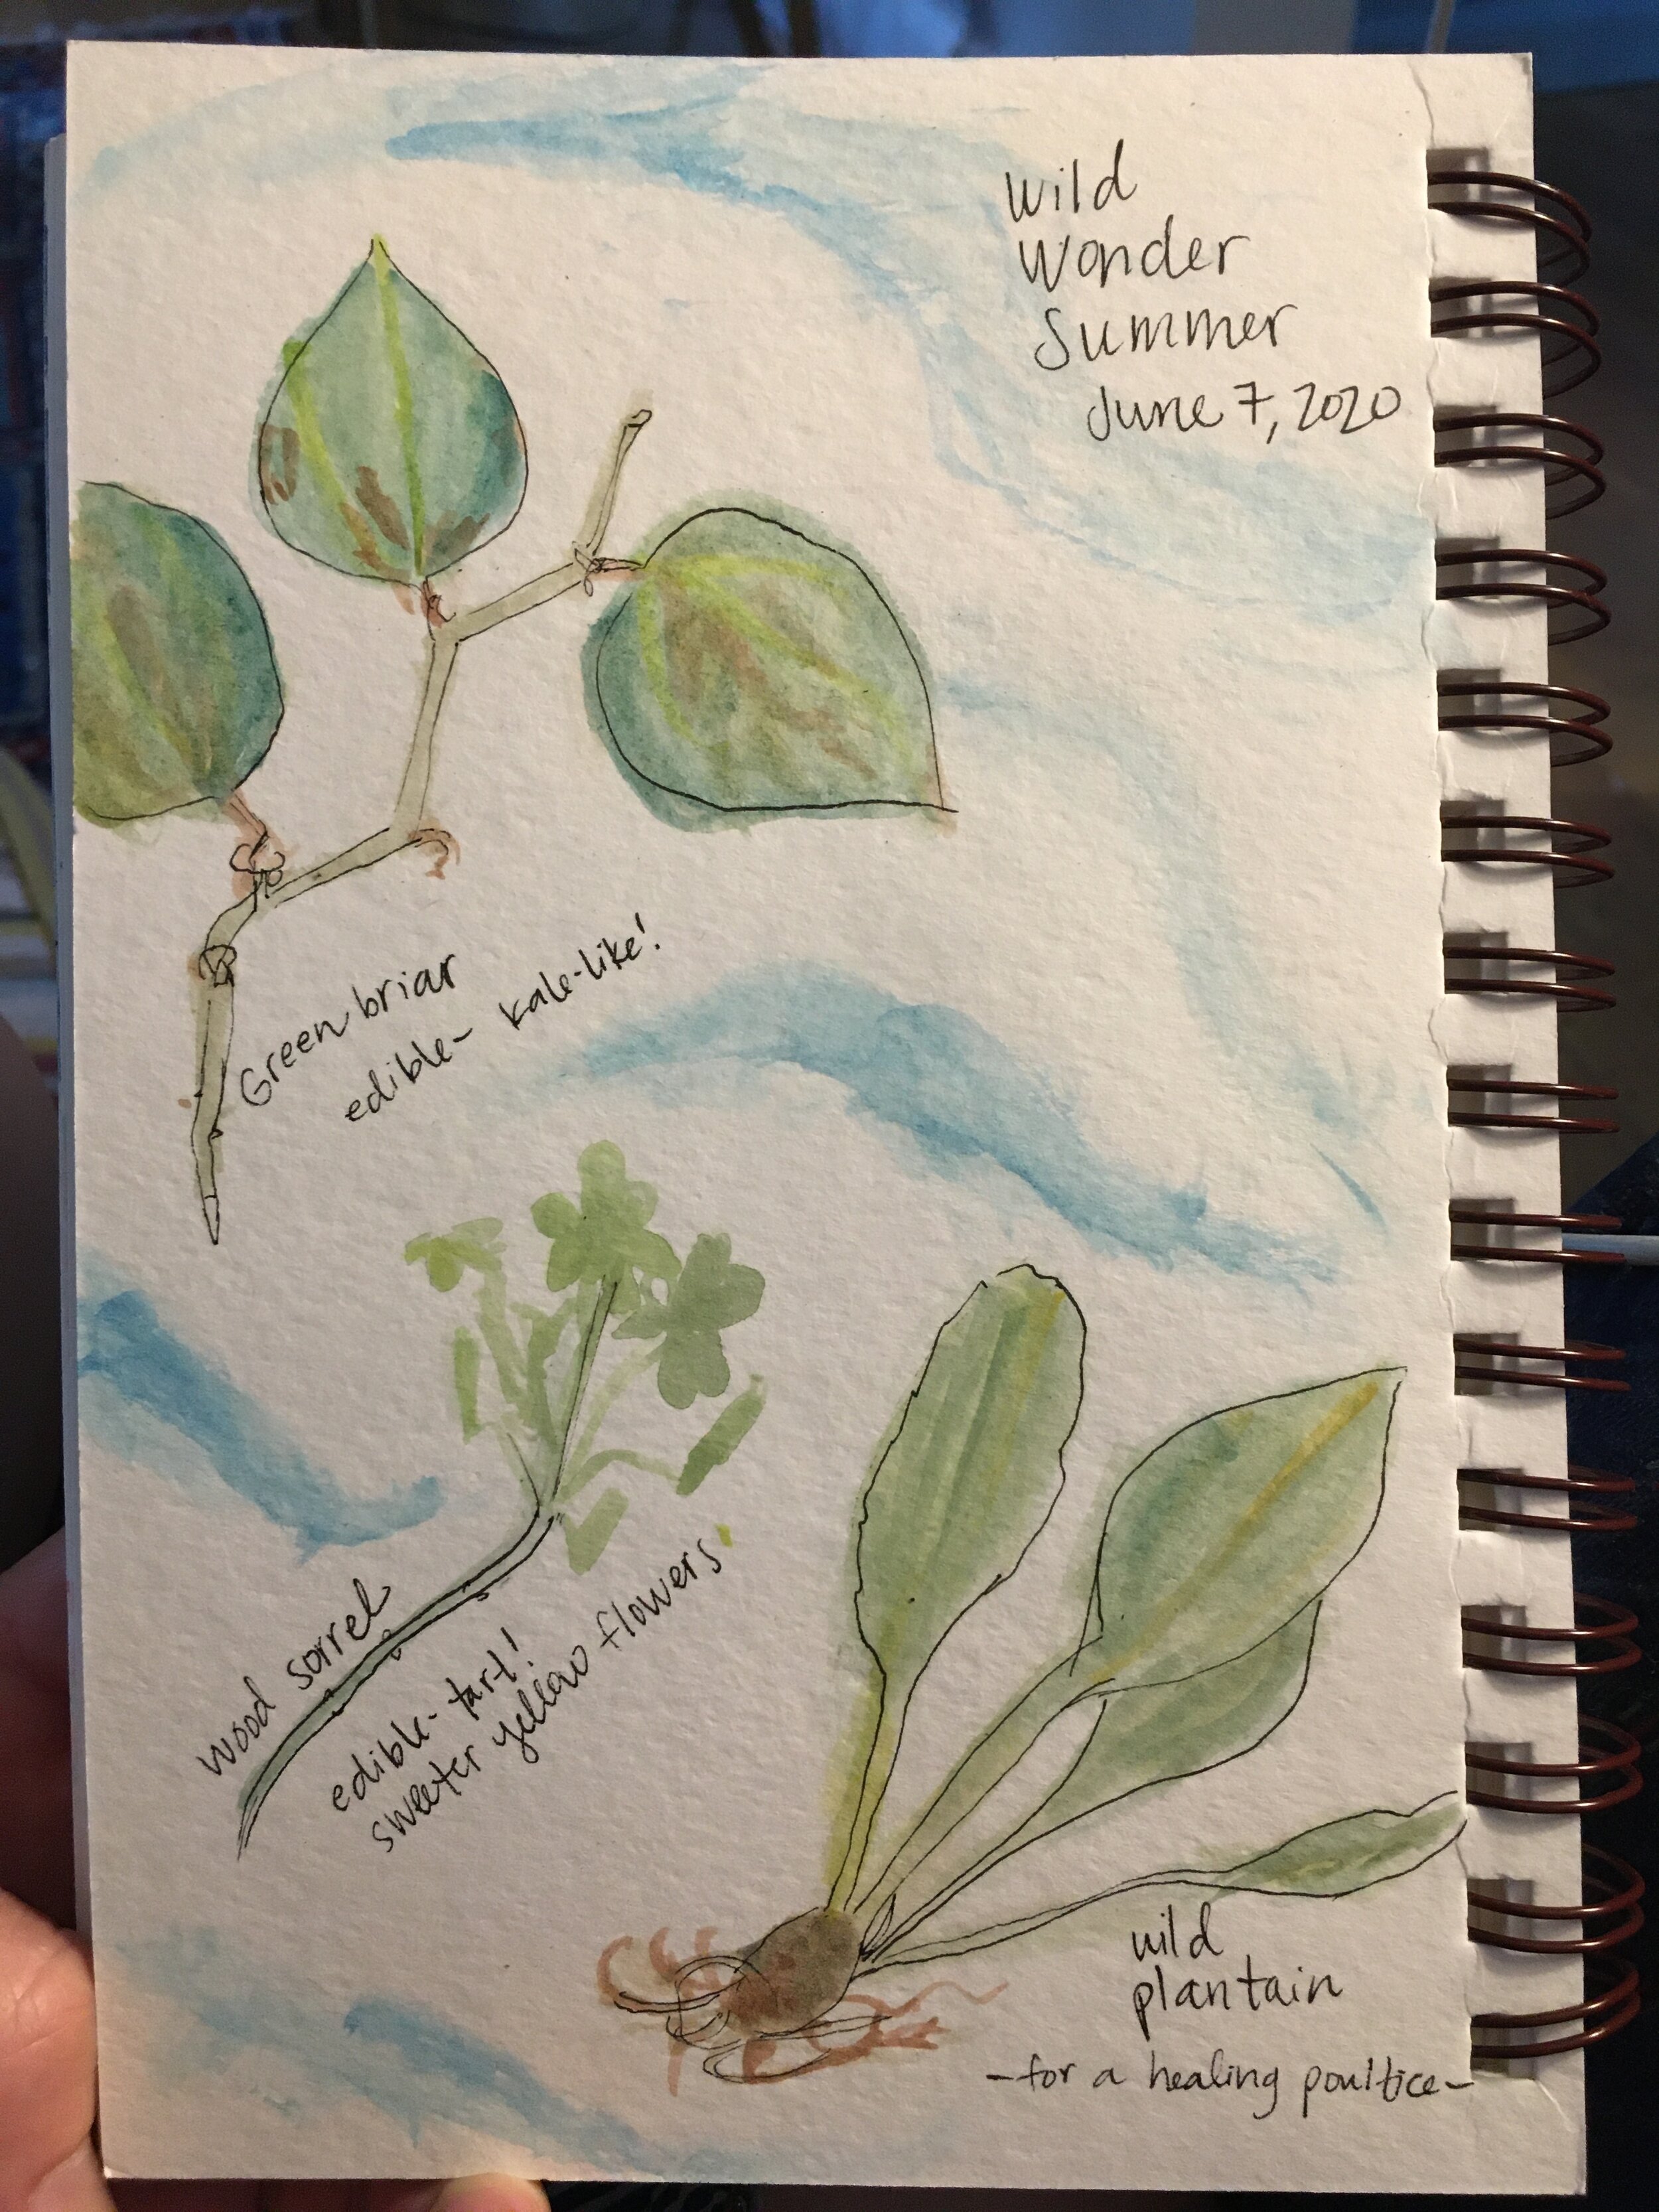 Wild
Wonder
Summer
June 7, 2020
Green briar
edible- kale-like!
wood sorrel
edible- tart!
sweeter yellow flowers
wild
plantain
-for a healing poultice-